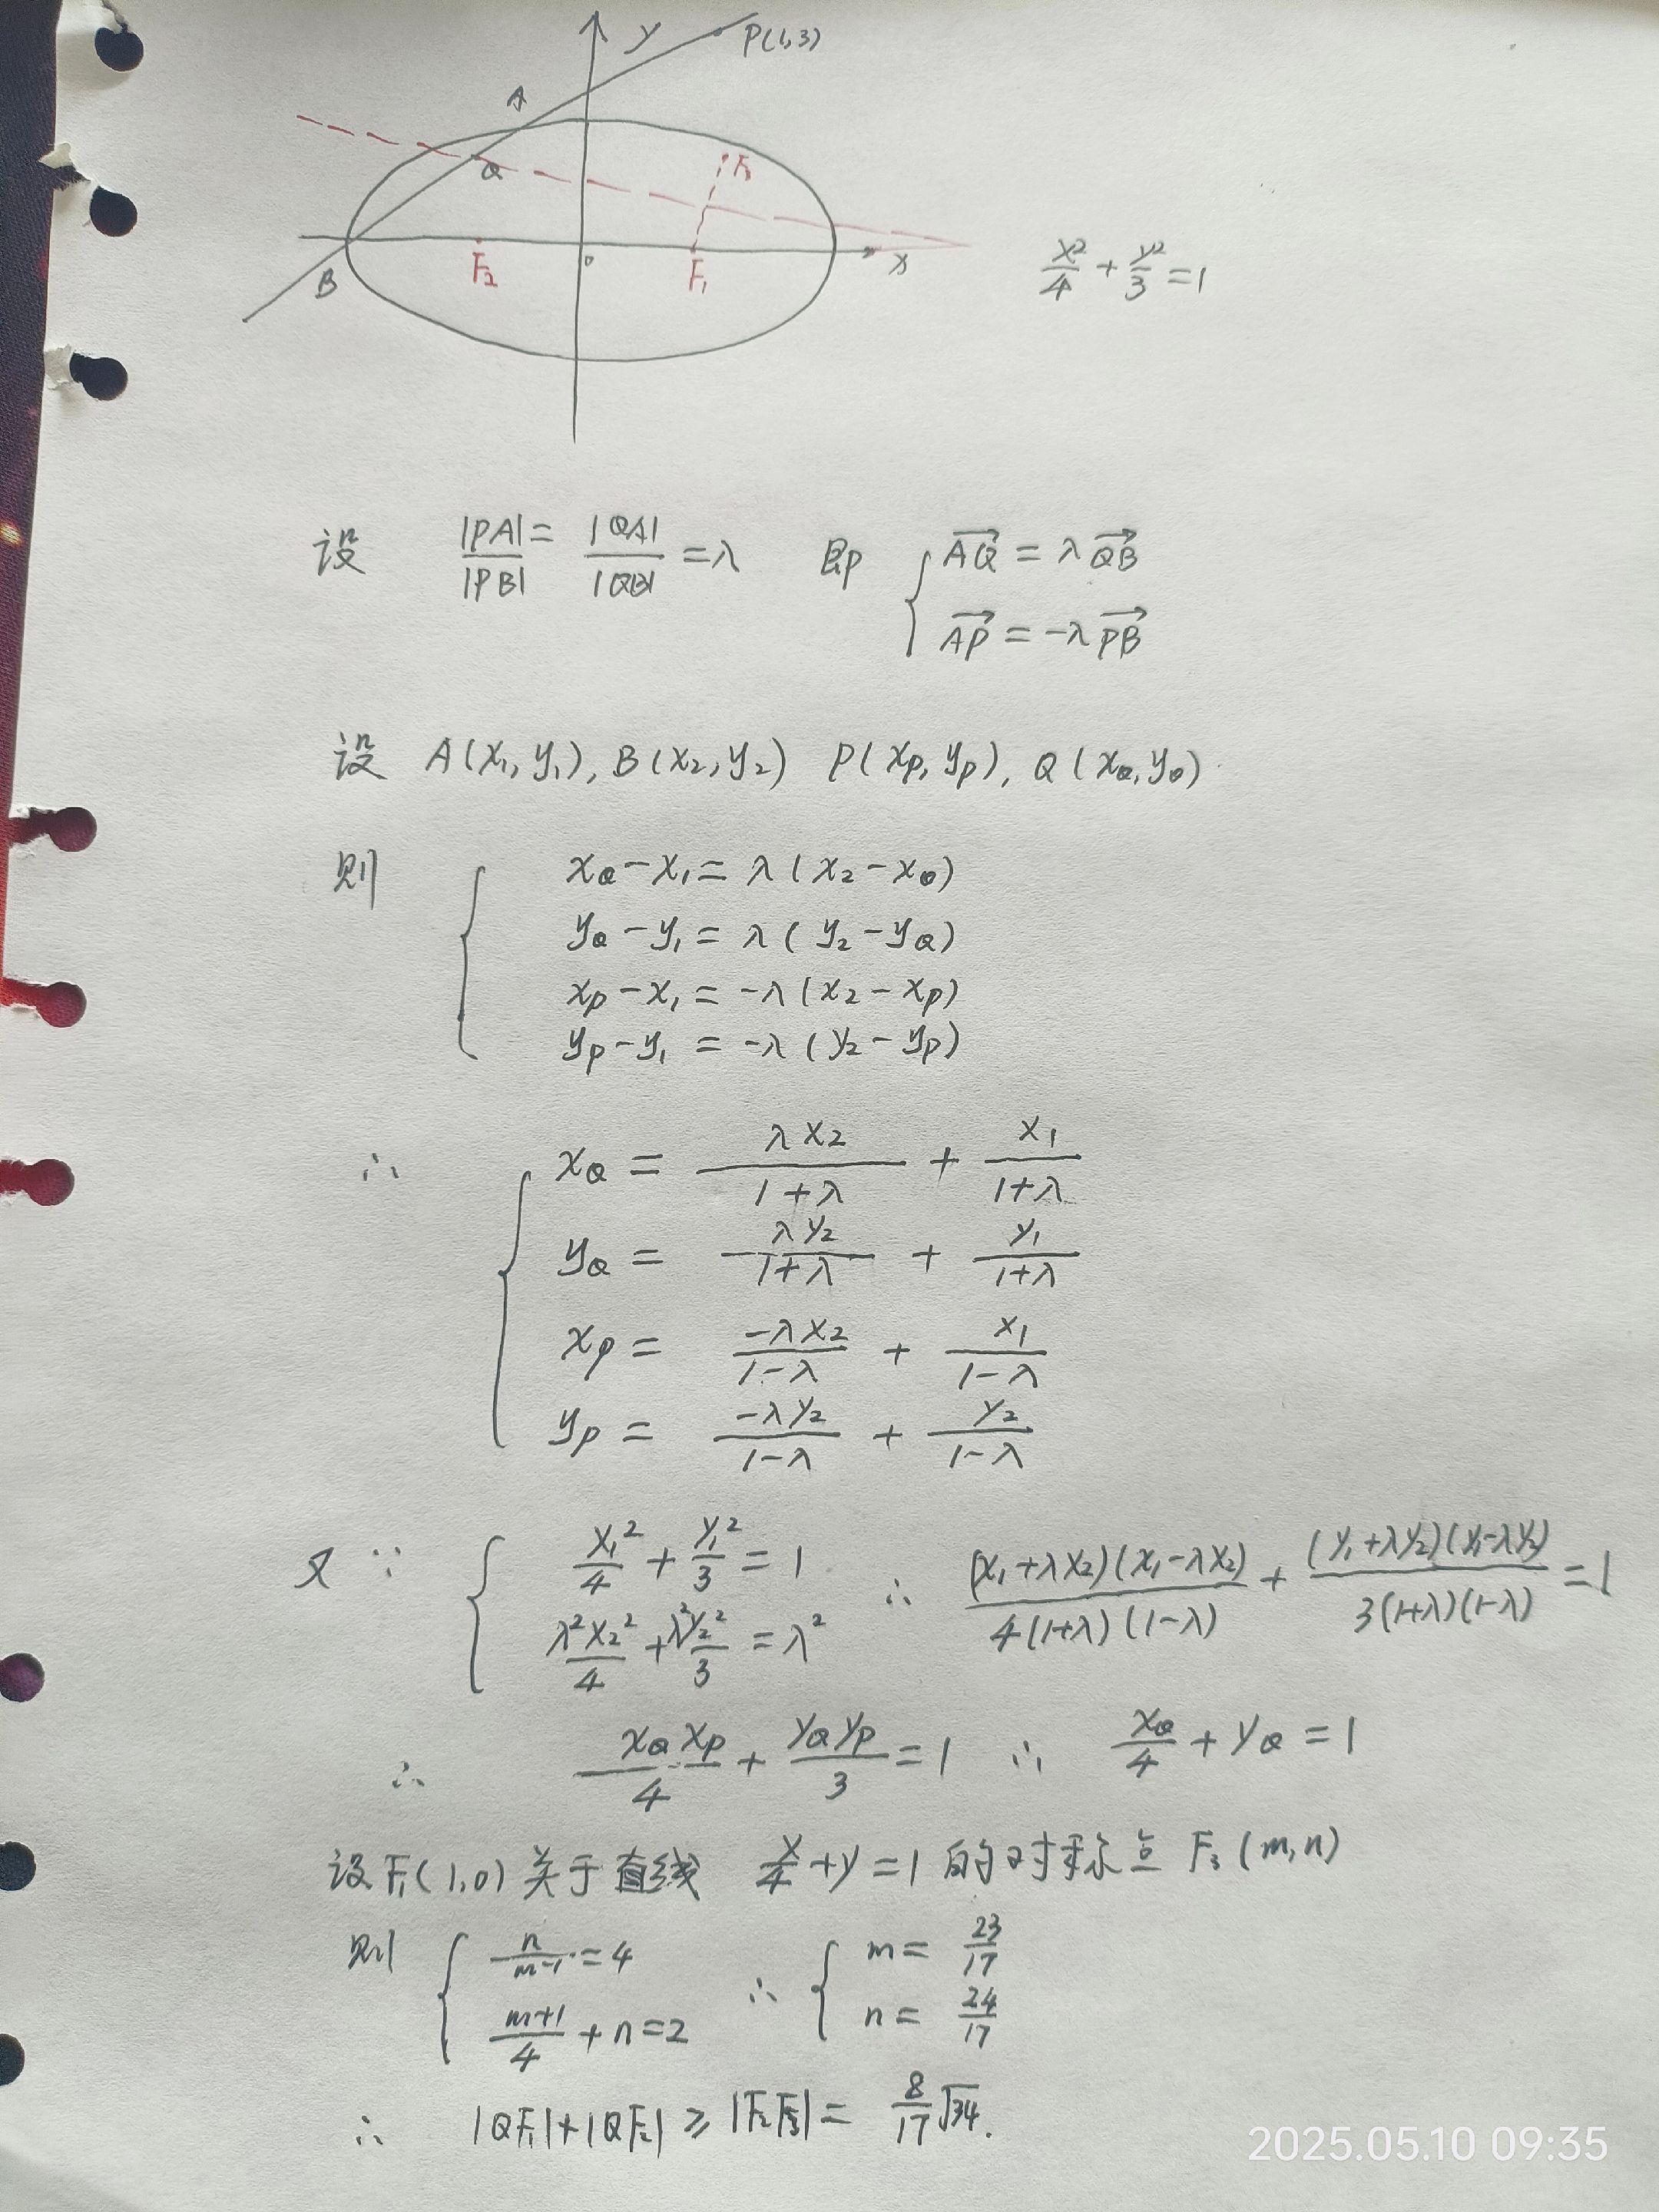 y
P(1,3)
A
Q
F₃
B
F₂
o
F₁
x
x²/4 + y²/3 = 1
设 |PA|/|PB| = |QA|/|QB| = λ 即 { AQ→ = λQB→
AP→ = -λPB→
设 A(x₁,y₁), B(x₂,y₂) P(xₚ,yₚ), Q(x_Q,y_Q)
则 { x_Q - x₁ = λ(x₂ - x_Q)
y_Q - y₁ = λ(y₂ - y_Q)
xₚ - x₁ = -λ(x₂ - xₚ)
yₚ - y₁ = -λ(y₂ - yₚ)
∴ { x_Q = λx₂/(1+λ) + x₁/(1+λ)
y_Q = λy₂/(1+λ) + y₁/(1+λ)
xₚ = -λx₂/(1-λ) + x₁/(1-λ)
yₚ = -λy₂/(1-λ) + y₂/(1-λ)
又∵ { x₁²/4 + y₁²/3 = 1
λ²x₂²/4 + λ²y₂²/3 = λ²
∴ (x₁+λx₂)(x₁-λx₂)/4(1+λ)(1-λ) + (y₁+λy₂)(y₁-λy₂)/3(1+λ)(1-λ) = 1
∴ x_Q xₚ/4 + y_Q yₚ/3 = 1 ∴ x_Q/4 + y_Q = 1
设F₁(1,0)关于直线 x/4 + y = 1 的对称点 F₃(m,n)
则 { n/(m-1) = 4
(m+1)/4 + n = 2
∴ { m = 23/17
n = 24/17
∴ |QF₁|+|QF₂| ≥ |F₂F₃| = 8/17 √34.
2025.05.10 09:35